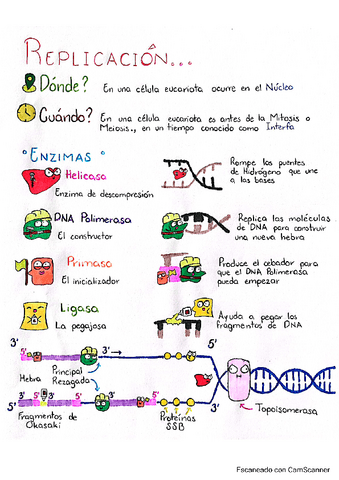 REPLICACIÓN...
Dónde? En una célula eucariota ocurre en el Núcleo
Cuándo? En una célula eucariota es antes de la Mitosis o
Meiosis., en un tiempo conocido como Interfa
° ENZIMAS °
Helicasa
Enzima de descompresión
Rompe los puentes
de Hidrógeno que une
a las bases
DNA Polimerasa
El constructor
Replica las moléculas
de DNA para construir
una nueva hebra
Primasa
El inicializador
Produce el cebador para
que el DNA Polimerasa
pueda empezar
Ligasa
La pegajosa
Ayuda a pegar los
fragmentos de DNA
3' 5' 3' → 3'
Hebra
Principal
Rezagada
5' 3' 5' 3' 5' 5'
Fragmentos de
Okasaki
Proteínas
SSB
Topoisomerasa
Escaneado con CamScanner